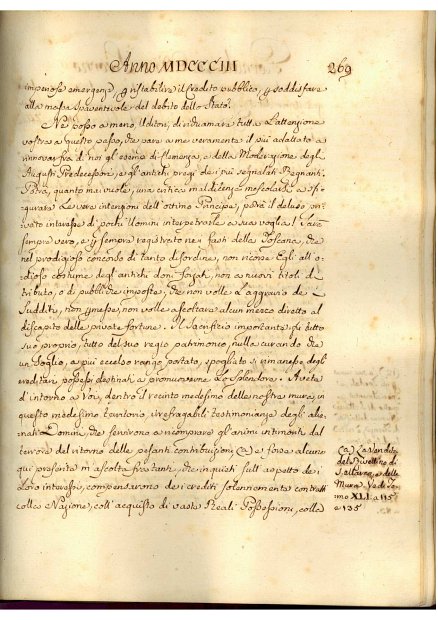 Anno MDCCCIII 269
imperiose emergenze, p ristabilire il Credito pubblico, p soddisfare
alla massa spaventevole del debito dello Stato.
Ne posso a meno, Uditori, di richiamare tutta l'attenzione
vostra a questo passo, che pare a me veramente il più adattato a
rinnovar fra di noi gli esempi di Clemenza, e della Moderazione degli
Augusti Predecessori, e gli antichi pregi dei più segnalati Regnanti.
Potrà, quanto mai vuole, una critica maldicenza mescolarsi a sfi-
gurare le vere intenzioni dell'ottimo Principe, potrà il deluso pri-
vato interesse di pochi Uomini interpetrarle a sua voglia! Sarà
sempre vero, e p sempre registrato nei fasti della Toscana, che
nel prodigioso concorso di tanto disordine, non ricorse Egli all'o-
dioso costume degli antichi, non a nuovi titoli di
tributo, o di pubbliche imposte, che non volle l'aggravio dei
Sudditi, non, non volle ascoltare alcun mezzo diretto al
discapito delle private fortune. Il Sacrifizio importante fu tutto
suo proprio, tutto del suo regio patrimonio, nulla curando che
un Soglio, a più eccelso rango portato, spogliato si rimanesse degli
ereditari possessi destinati a promuoverne lo Splendore. Avete
d'intorno a Voi, dentro il recinto medesimo delle nostre mura, in
questo medesimo territorio, irrefragabili testimonianze degli alie-
nati Domini, che servirono a ricomprare gli animi intimoriti dal
terrore del ritorno delle pesanti contribuzioni (a) e forse alcuno
qui presente m'ascolta fra tanti, che inquieti sull'aspetto dei
Loro interessi, compensarono dei crediti solennemente contratti
colla Nazione, coll'acquisto di vaste Reali Possessioni, colla
(a) La Vendita
del
e delle
Mura Vedi To-
mo XLI. a 115
e 135